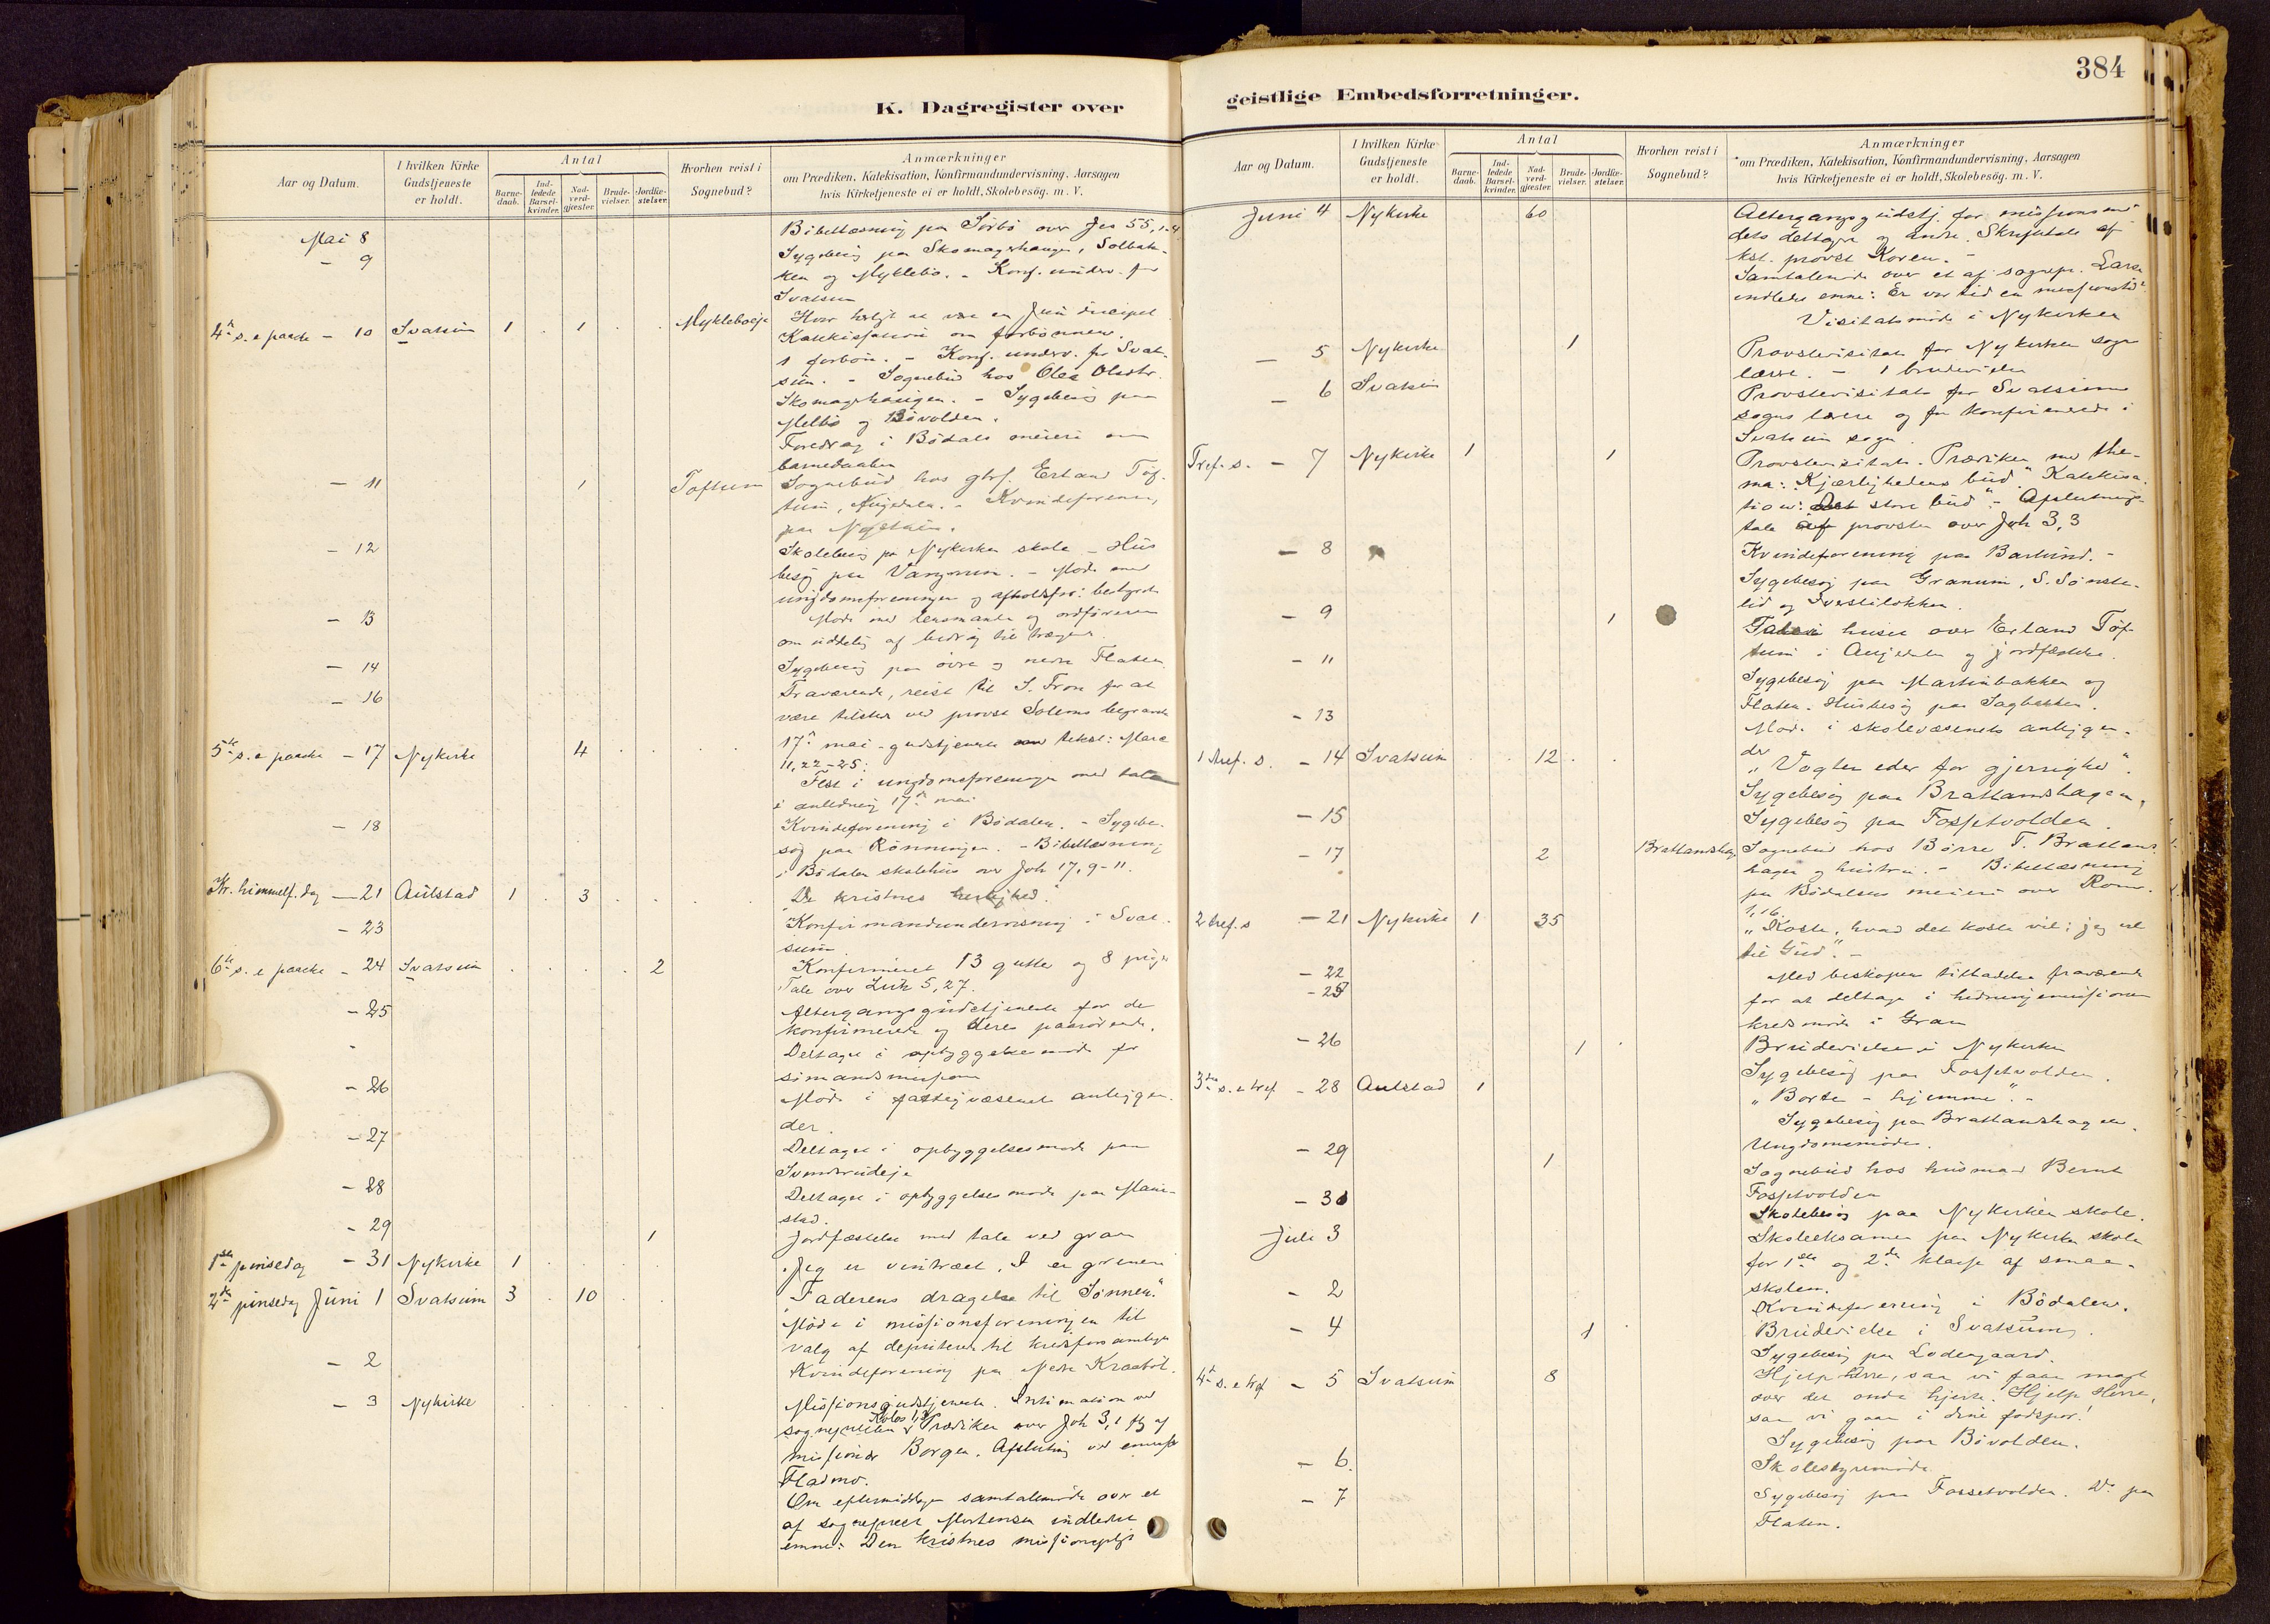 K. Dagregister over
Aar og Datum.
I hvilken Kirke Gudstjeneste er holdt.
Antal
Barne-daab.
Ind-ledede Barsel-kvinder.
Nad-verd-gjæster.
Brude-vielser.
Jordfæ-stelser.
Hvorhen reist i Sognebud?
Anmærkninger
om Prædiken, Katekisation, Konfirmandundervisning, Aarsagen
hvis Kirketjeneste ei er holdt, Skolebesøg. m. V.
Mai 8 Bibellæsning paa Sørbø over Jes 55, 1-4
- 9 Sygebesøg paa Skomagerhaugen, Solbak-
ken og Myklebø. - Konf. underv. for
Svatsum
4de s. e paaske - 10 Svatsum 1 . 1 . . Mykleboeje
Katekisation om forbønnen.
1 forbøn. - Konf. underv. for Svat-
sum. - Sognebud hos Olea Olsdtr.
Skomagerhaugen. - Sygebesøg paa
Melbø og Bøvolden.
Foredrag i Bødals meieri om
barnedaaben
- 11 1 Toftum Sognebud hos gbr. Erland Tøf-
tum, Augedalen. - Kvindeforening
paa Nystuen.
- 12 Skolebesøg på Nykirken skole - Hus
besøg paa Vangmoen. - Møde med
ungdomsforeningen og afholdsfor: bestyrelse
- 13 Møde med lensmanden og ordføreren
om uddeling af bidrag til trængende.
- 14 Sygebesøg paa øvre og nedre Flaten.
- 16 Fraværende, reist til S. Fron for at
være tilstede ved provst Solems begravelse
5te s. e paaske - 17 Nykirke 4 . . . 17de mai-gudstjeneste tekst: Marc
11, 22-25.
Fest i ungdomsforeningen med tale
i anledning 17de mai
- 18 Kvindeforening i Bødalen. - Sygebe-
søg paa Rønningen. - Bibellæsning
i Bødalen skolehus over Joh 17, 9-11.
Kr. himmelf. dag - 21 Aulstad 1 . 3 . . . De kristnes herlighed.
- 23 Konfirmandundervisning i Svat-
sum
6te s. e paaske - 24 Svatsum . . . . 2 Konfirmeret 13 gutter og 8 piger
Tale over Luk 5, 27.
- 25 Altergangsgudstjeneste for de
konfirmerede og deres paarørende.
- Deltaget i opbyggelsesmøde for
sømandsmissionen
- 26 Møde i fattigvæsenets anliggen-
der.
- 27 Deltaget i opbyggelsesmøde paa
Svendsrudeje
- 28 Deltaget i opbyggelsesmøde paa Mani-
stad.
- 29 1 Jordfæstelse med tale ved graven
1ste pinsedag - 31 Nykirke 1 . . . . "Jeg er vintræet, I er grenene
2den pinsedag Juni 1 Svatsum 3 . 10 . . "Faderens dragelse til Sønnen."
Møde i missionsforeningen til
valg af deputerede til kredsforsamlingen
- 2 Kvindeforening paa Nedre Kraabøl.
- 3 Nykirke . . . . . Missionsgudstjeneste. Intimation ved
sognepresten Kolos 1,3. Prædiken over Joh 3, 1 flg af
missionær Borgen. Afslutning ved emmisær
Fladmo.
Om eftermiddagen samtalemøde over et
af sogneprest Mortensen indledet
emne: Den kristnes missionspligt
384
geistlige Embedsforretninger.
Aar og Datum.
I hvilken Kirke Gudstjeneste er holdt.
Antal
Barne-daab.
Ind-ledede Barsel-kvinder.
Nad-verd-gjæster.
Brude-vielser.
Jordfæ-stelser.
Hvorhen reist i Sognebud?
Anmærkninger
om Prædiken, Katekisation, Konfirmandundervisning, Aarsagen
hvis Kirketjeneste ei er holdt, Skolebesøg. m. V.
Juni 4 Nykirke 60 Altergangsgudstj. for missionsmø-
dets deltagere og andre. Skriftetale af
kst. provst Koren. -
Samtalemøde over et af sognepr. Larsen
indledet emne: Er vor tid en missionstid?
Visitatsmøde i Nykirken
- 5 Nykirke 1 Provstevisitats for Nykirken sogns
lærere. - 1 brudevielse
- 6 Svatsum Provstevisitats for Svatsums
sogns lærere og for konfirmerede i
Svatsum sogn.
Tref. s. - 7 Nykirke 1 1 Provstevisitats. Prædiken med the-
ma: "Kjærlighedens bud." Katekisa-
tion: "Det store bud". Afslutnings-
tale af provsten over Joh 3, 3
- 8 Kvindeforening paa Barlund. -
Sygebesøg paa Granum, S. Sønste-
lid og
- 9 1 Tale i huset over Erland Tøf-
tum i Augedalen og jordfæstelse.
- 11 Sygebesøg paa Martinbakken og
Flaten. Husbesøg paa Sagbakken.
- 13 Møde i skolevæsenets anliggen-
der
1 tref. s. - 14 Svatsum . . 12 . . "Vogter eder for gjerrighed".
Sygebesøg paa Brattandshagen,
- 15 Sygebesøg paa Fossetvolden.
- 17 2 Brattandshag. Sognebud hos Børre T. Brattands-
hagen og hustru. - Bibellæsning
paa Bødalens meieri over Rom.
1, 16.
2 tref. s - 21 Nykirke 1 35 "Koste, hvad det koste vil; jeg vil
til Gud". -
- 22
- 25 Med biskopens tilladelse fraværende
for at deltage i hedningemissionens
kredsmøde i Gran
- 26 1 . Brudevielse i Nykirken
Sygebesøg paa Fossetvolden.
3die s. e tref - 28 Aulstad 1 "Borte - hjemme". -
Sygebesøg paa Brattandshagen.
Ungdomsmøde.
- 29 1 Sognebud hos husmand Bernt
Fossetvolden
- 30 Skolebesøg paa Nykirken skole.
Juli 3 Skoleeksamen paa Nykirken skole
for 1ste og 2den klasse af smaa-
skolen.
- 2 Kvindeforening i Bødalen.
- 4 1 Brudevielse i Svatsum.
Sygebesøg paa Lodengaard.
4de s. e tref - 5 Svatsum 8 Hjælp Herre, saa vi faar magt
over det onde hjerte. Hjelp Herre,
saa vi gaar i dine fodspor!
Sygebesøg paa Bøvolden.
- 6. Skolestyremøde
- 7 Sygebesøg paa Fossetvolden. Do paa
Flaten.